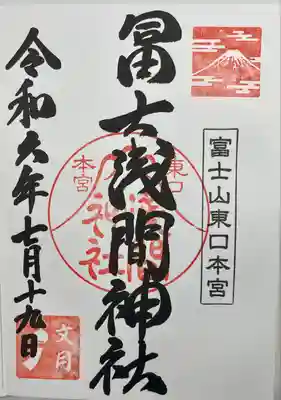 富士山東口本宮
冨士浅間神社
東口
本宮
浅間
神社
令和六年七月十九日
文月